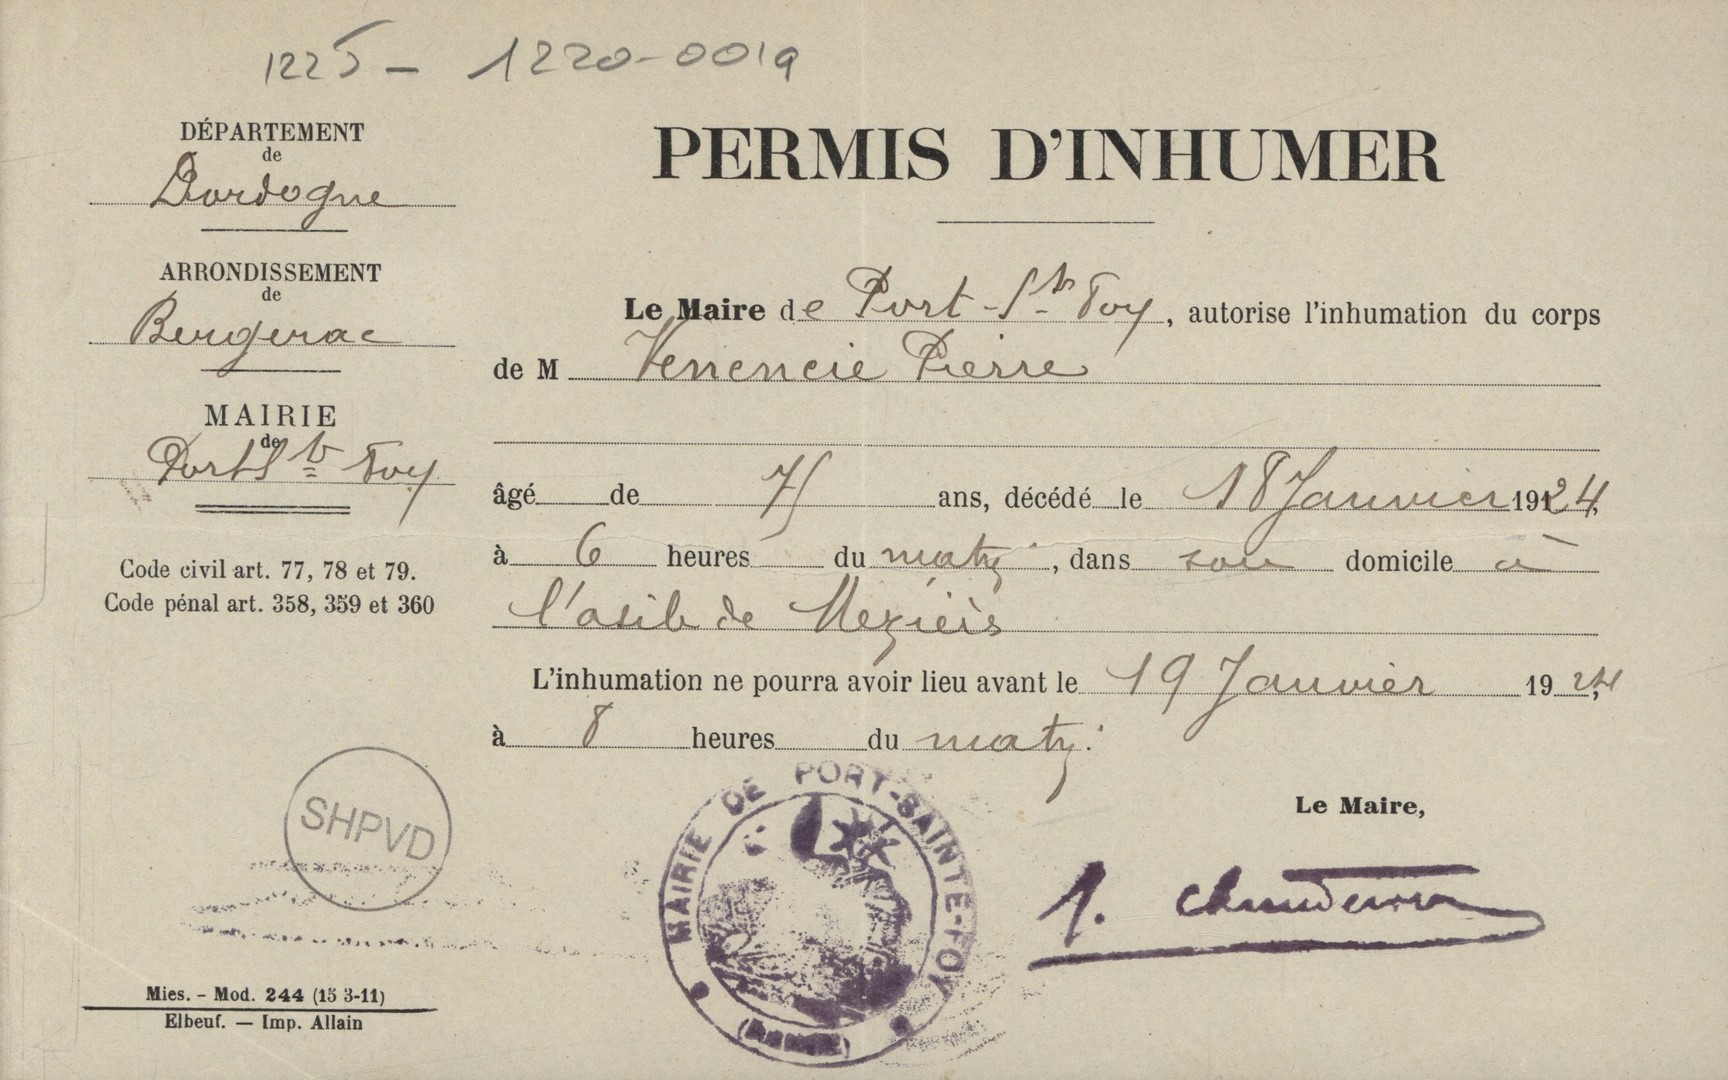 1225 - 1220-0019
DÉPARTEMENT
de
Dordogne
ARRONDISSEMENT
de
Bergerac
MAIRIE
de
Port Ste Foy
Code civil art. 77, 78 et 79.
Code pénal art. 358, 359 et 360
PERMIS D'INHUMER
Le Maire de Port-Ste Foy, autorise l'inhumation du corps
de M Venencie Pierre
âgé de 75 ans, décédé le 18 Janvier 1924,
à 6 heures du matin, dans son domicile à
l'asile de
L'inhumation ne pourra avoir lieu avant le 19 Janvier 1924,
à 8 heures du matin.
Le Maire,
SHPVD
MAIRIE DE PORT-SAINTE-FOY
Mies. - Mod. 244 (15 3-11)
Elbeuf. — Imp. Allain